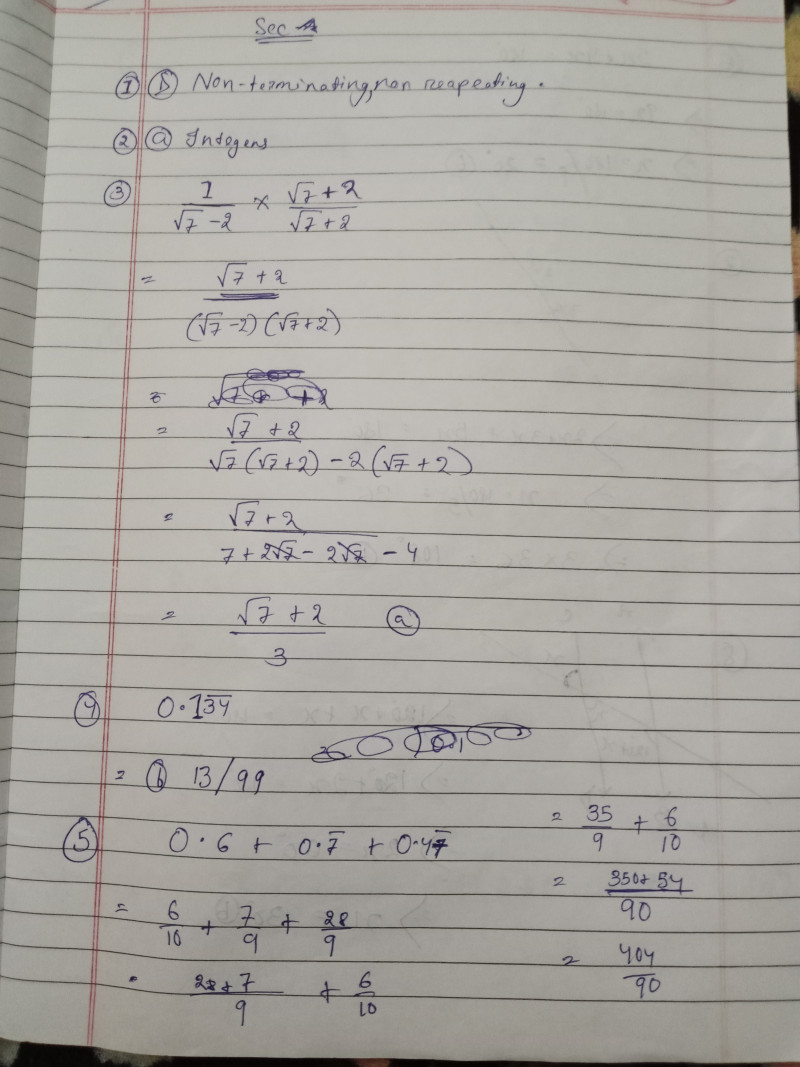 Sec A
① ⓓ Non-terminating, non reapeating.
② ⓐ Integers
③ 1/(√7-2) × (√7+2)/(√7+2)
= (√7+2)/((√7-2)(√7+2))
=
= (√7+2)/(√7(√7+2)-2(√7+2))
= (√7+2)/(7+2√7-2√7-4)
= (√7+2)/3 ⓐ
④ 0.13̅4̅
= ⓑ 13/99
⑤ 0.6 + 0.7̅ + 0.47̅
= 6/10 + 7/9 + 28/9
(28+7)/9 + 6/10
= 35/9 + 6/10
= (350+54)/90
= 404/90